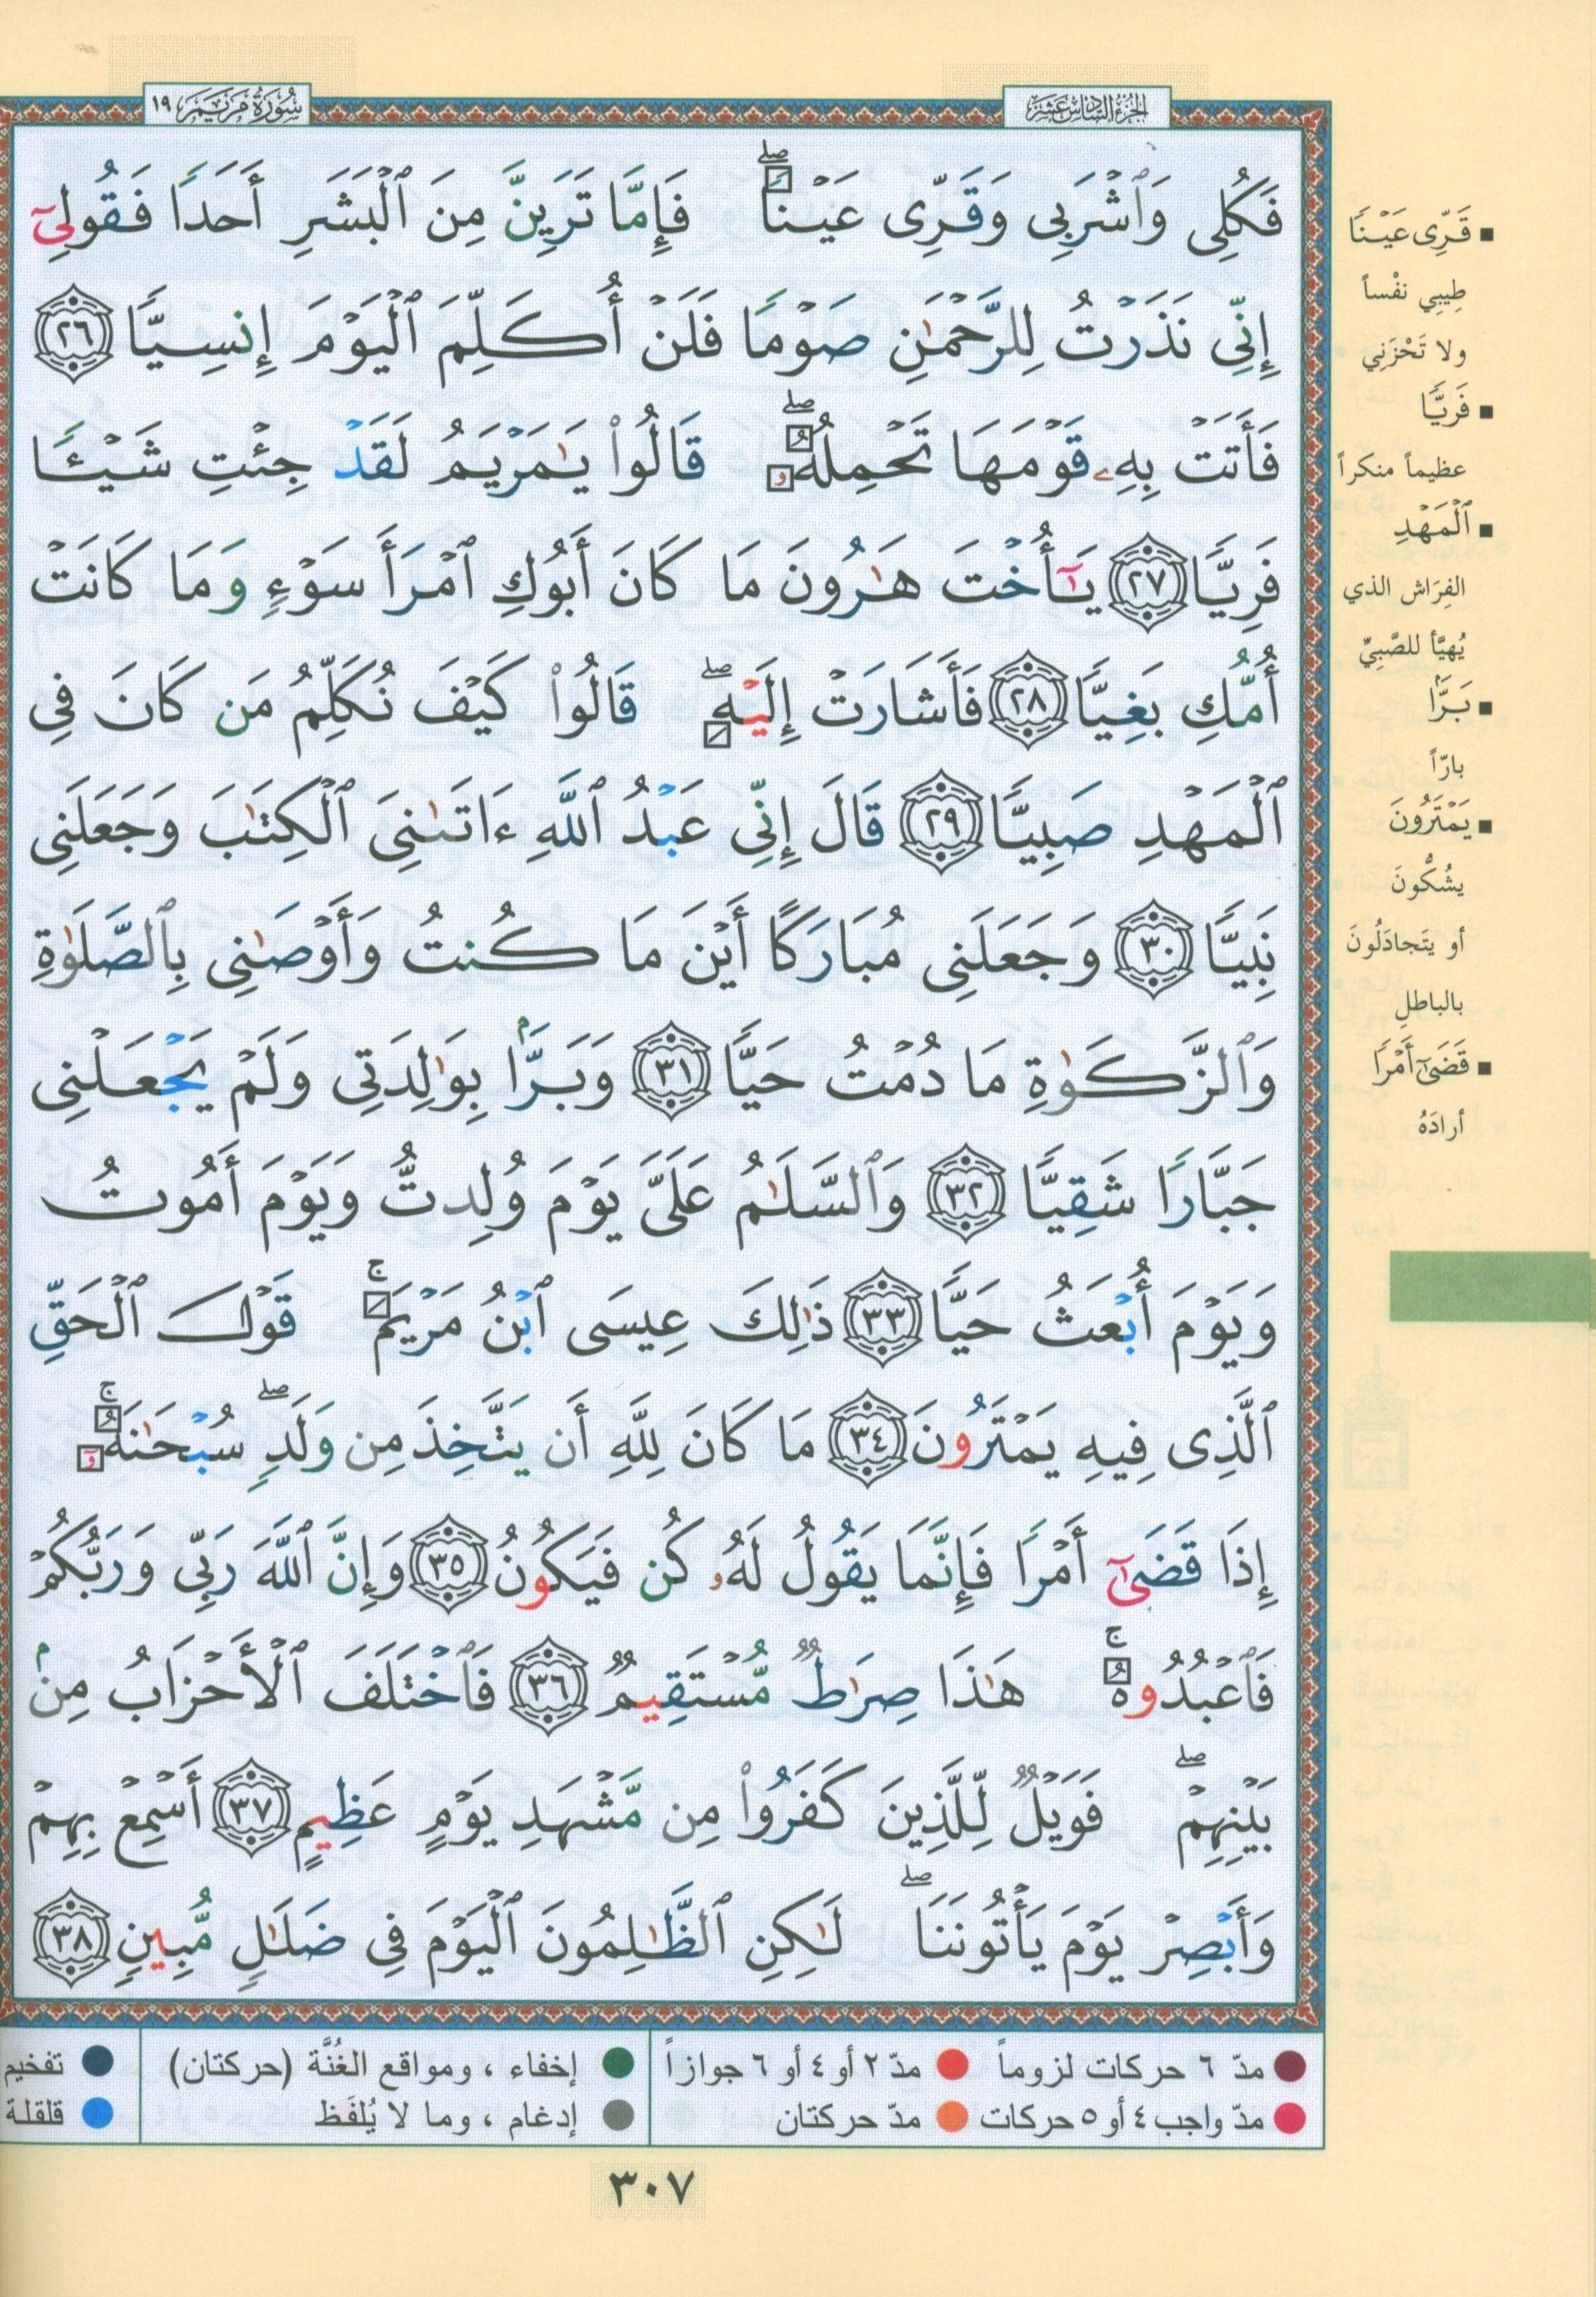 سُورَةُ مَرْيَمَ ١٩
الجُزْءُ السَّادِسَ عَشَرَ
فَكُلِى وَٱشْرَبِى وَقَرِّى عَيْنًا ۖ فَإِمَّا تَرَيِنَّ مِنَ ٱلْبَشَرِ أَحَدًا فَقُولِىٓ
إِنِّى نَذَرْتُ لِلرَّحْمَـٰنِ صَوْمًا فَلَنْ أُكَلِّمَ ٱلْيَوْمَ إِنسِيًّا ٢٦
فَأَتَتْ بِهِۦ قَوْمَهَا تَحْمِلُهُۥ ۖ قَالُوا۟ يَـٰمَرْيَمُ لَقَدْ جِئْتِ شَيْـًٔا
فَرِيًّا ٢٧ يَـٰٓأُخْتَ هَـٰرُونَ مَا كَانَ أَبُوكِ ٱمْرَأَ سَوْءٍ وَمَا كَانَتْ
أُمُّكِ بَغِيًّا ٢٨ فَأَشَارَتْ إِلَيْهِ ۖ قَالُوا۟ كَيْفَ نُكَلِّمُ مَن كَانَ فِى
ٱلْمَهْدِ صَبِيًّا ٢٩ قَالَ إِنِّى عَبْدُ ٱللَّهِ ءَاتَىٰنِىَ ٱلْكِتَـٰبَ وَجَعَلَنِى
نَبِيًّا ٣٠ وَجَعَلَنِى مُبَارَكًا أَيْنَ مَا كُنتُ وَأَوْصَـٰنِى بِٱلصَّلَوٰةِ
وَٱلزَّكَوٰةِ مَا دُمْتُ حَيًّا ٣١ وَبَرًّۢا بِوَٰلِدَتِى وَلَمْ يَجْعَلْنِى
جَبَّارًا شَقِيًّا ٣٢ وَٱلسَّلَـٰمُ عَلَىَّ يَوْمَ وُلِدتُّ وَيَوْمَ أَمُوتُ
وَيَوْمَ أُبْعَثُ حَيًّا ٣٣ ذَٰلِكَ عِيسَى ٱبْنُ مَرْيَمَ ۚ قَوْلَ ٱلْحَقِّ
ٱلَّذِى فِيهِ يَمْتَرُونَ ٣٤ مَا كَانَ لِلَّهِ أَن يَتَّخِذَ مِن وَلَدٍ ۖ سُبْحَـٰنَهُۥٓ ۚ
إِذَا قَضَىٰٓ أَمْرًا فَإِنَّمَا يَقُولُ لَهُۥ كُن فَيَكُونُ ٣٥ وَإِنَّ ٱللَّهَ رَبِّى وَرَبُّكُمْ
فَٱعْبُدُوهُ ۚ هَـٰذَا صِرَٰطٌ مُّسْتَقِيمٌ ٣٦ فَٱخْتَلَفَ ٱلْأَحْزَابُ مِنۢ
بَيْنِهِمْ ۖ فَوَيْلٌ لِّلَّذِينَ كَفَرُوا۟ مِن مَّشْهَدِ يَوْمٍ عَظِيمٍ ٣٧ أَسْمِعْ بِهِمْ
وَأَبْصِرْ يَوْمَ يَأْتُونَنَا ۖ لَـٰكِنِ ٱلظَّـٰلِمُونَ ٱلْيَوْمَ فِى ضَلَـٰلٍ مُّبِينٍ ٣٨
■ قَرِّى عَيْنًا
طِيبِي نفْساً
ولا تَحْزَنِي
■ فَرِيًّا
عظيماً منكراً
■ ٱلْمَهْدِ
الفِرَاش الذي
يُهيَّأ للصَّبِيِّ
■ بَرًّۢا
بارّاً
■ يَمْتَرُونَ
يشُكُّونَ
أو يتَجادَلُونَ
بالباطلِ
■ قَضَىٰٓ أَمْرًا
أرادَهُ
● مدّ ٦ حركات لزوماً ● مدّ ٢ أو ٤ أو ٦ جوازاً
● مدّ واجب ٤ أو ٥ حركات ● مدّ حركتان
● إخفاء ، ومواقع الغُنَّة (حركتان)
● إدغام ، وما لا يُلفَظ
● تفخيم
● قلقلة
٣٠٧